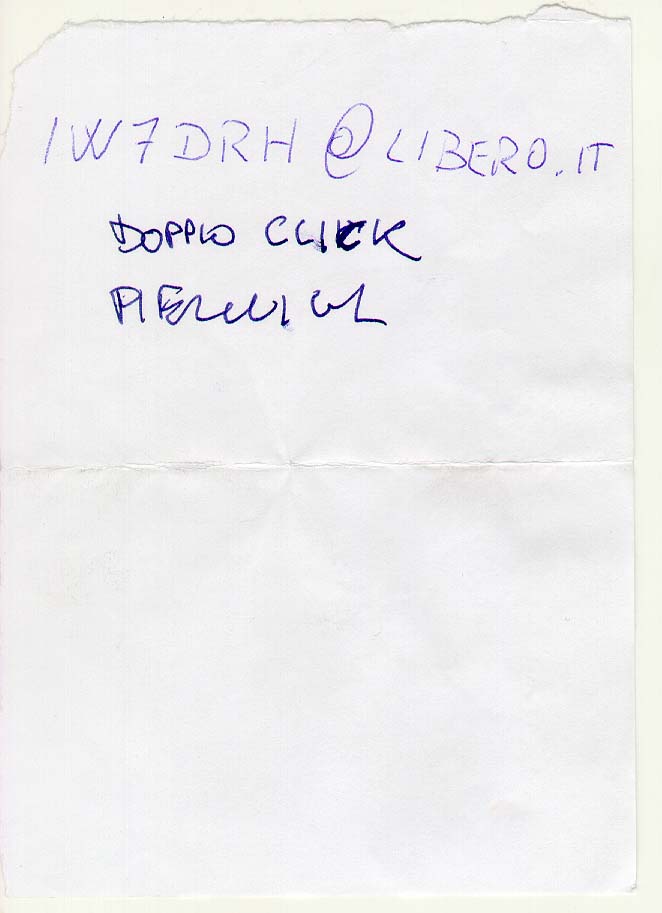 IW7DRH@LIBERO.IT
DOPPIO CLICK